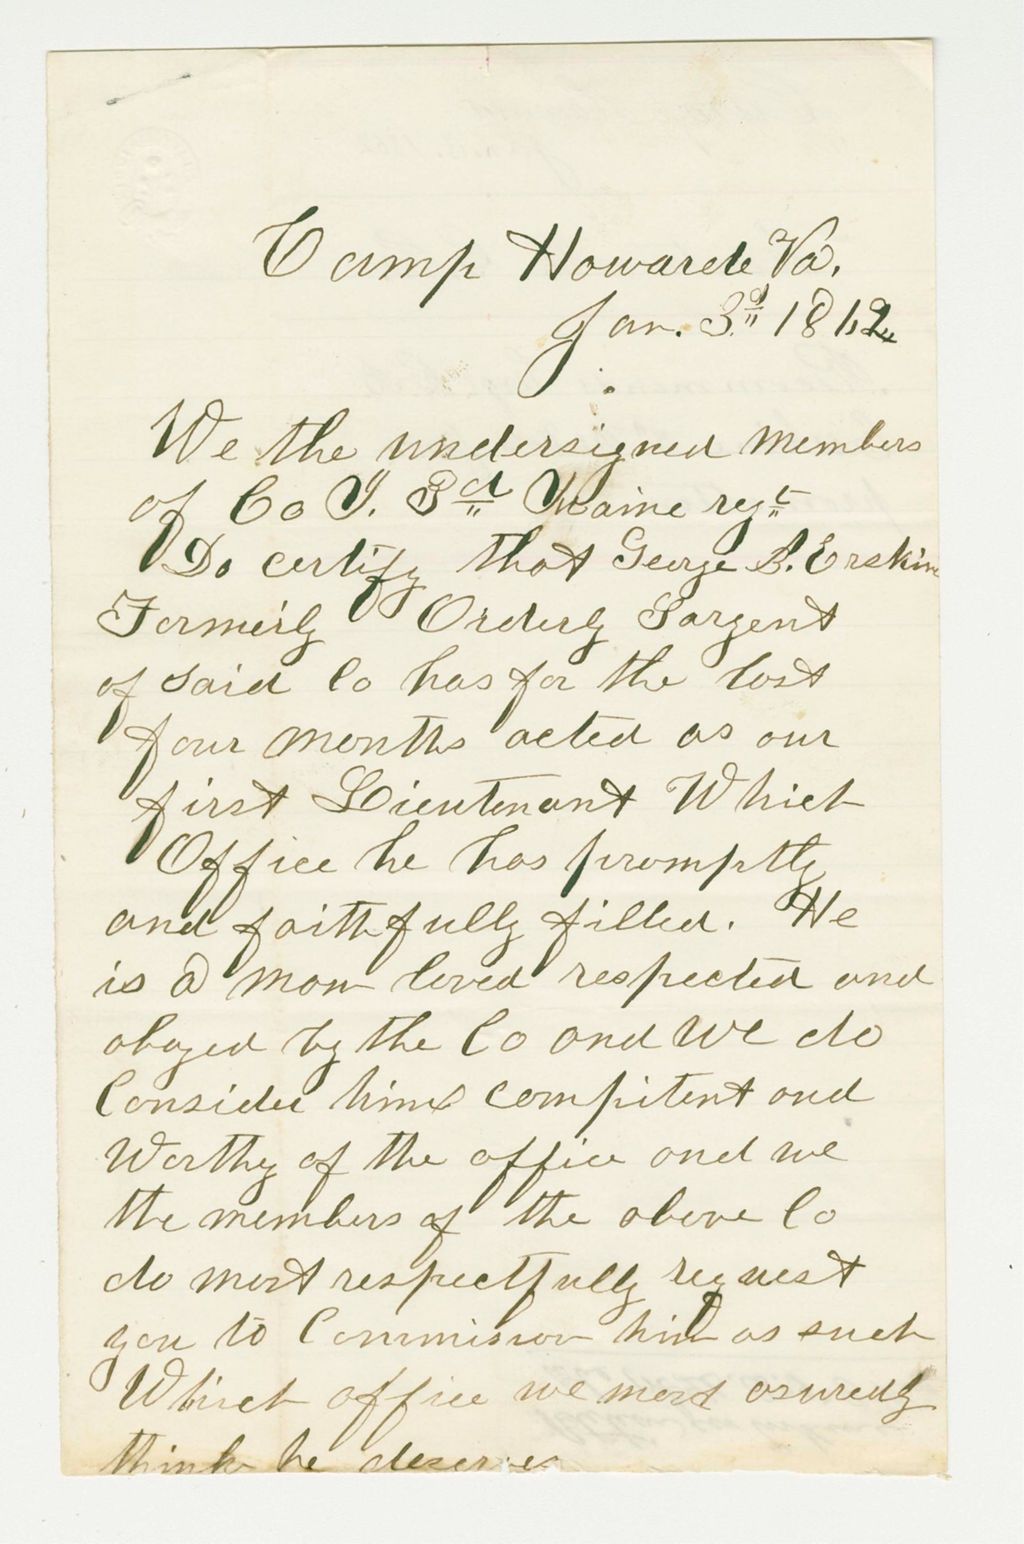 Camp Howard Va.
Jan. 3d 1862
We the undersigned members
of Co I. 3d Maine regt
Do certify that George B. Erskine
Formerly Orderly Sargent
of said Co has for the last
four months acted as our
first Lieutenant Which
Office he has promptly
and faithfully filled. He
is a man loved respected and
obayed by the Co and we do
Consider him compitent and
Worthy of the office and we
the members of the above Co
do most respectfully request
you to Commission him as such
Which office we most asuredly
think he deserves